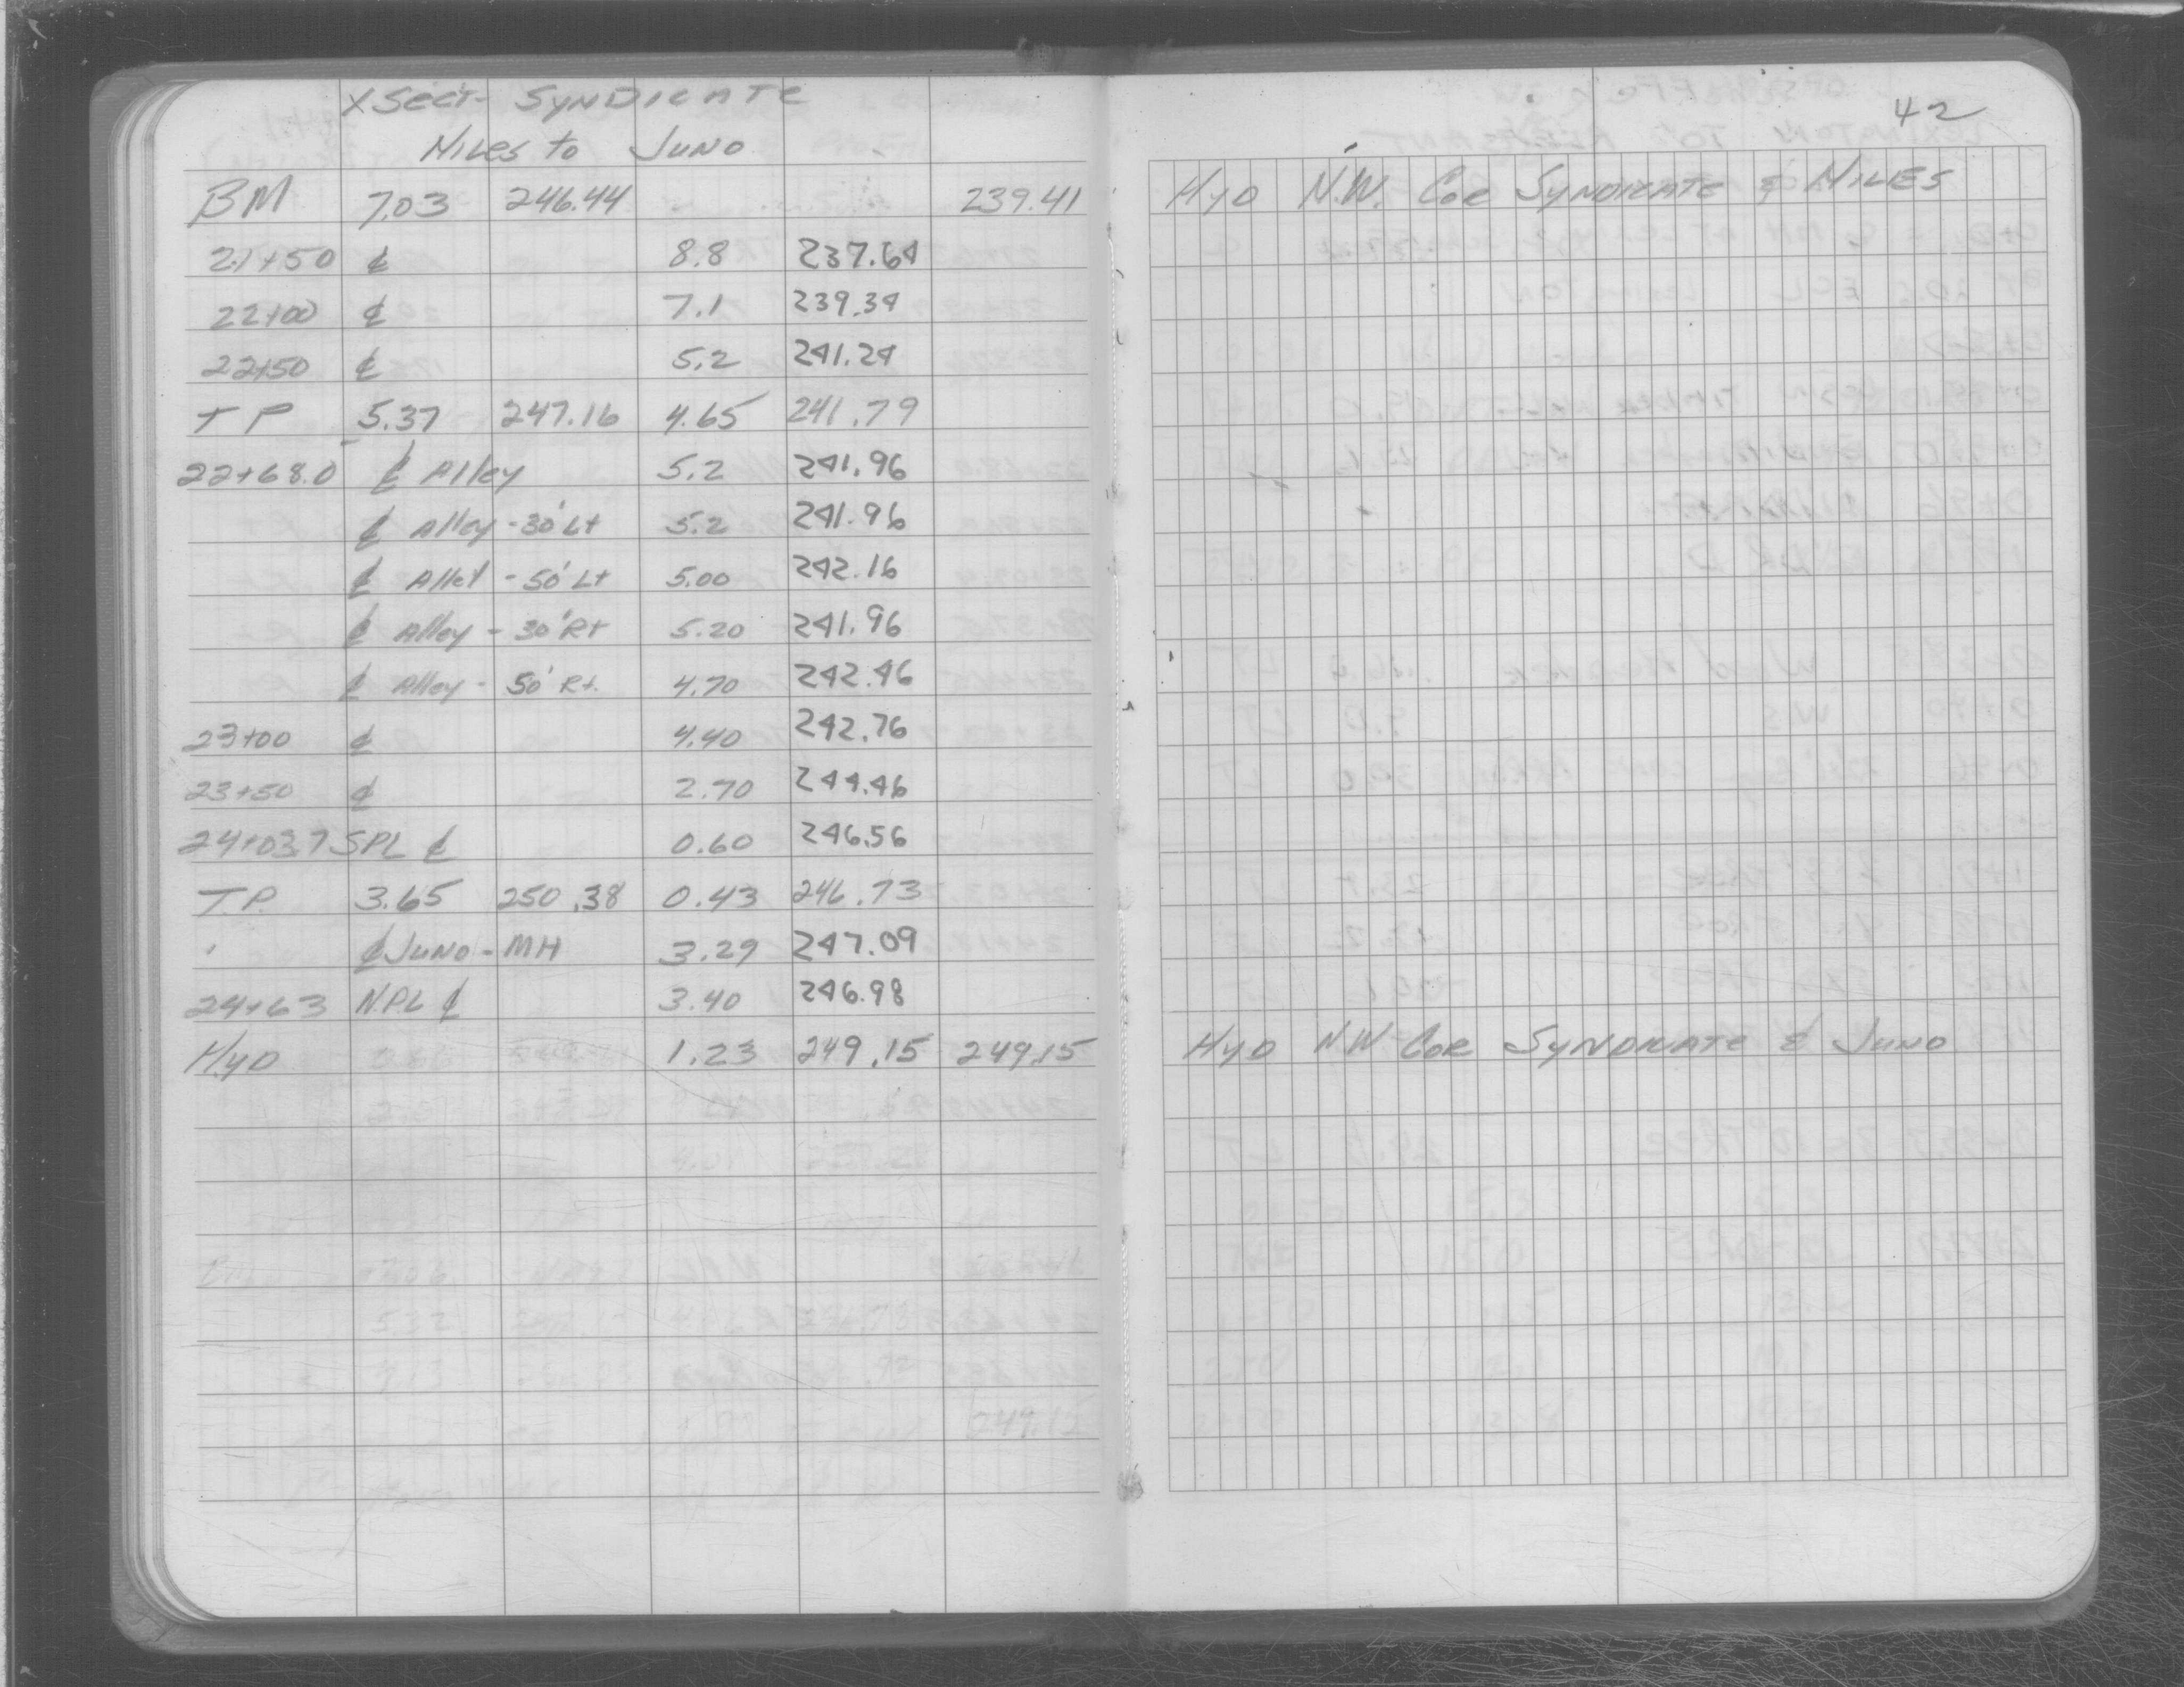 X Sect- SYNDICATE
Niles to JUNO
BM 7.03 246.44 239.41
21+50 ℄ 8.8 237.64
22+00 ℄ 7.1 239.34
22+50 ℄ 5.2 241.24
TP 5.37 247.16 4.65 241.79
22+68.0 ℄ Alley 5.2 241.96
℄ Alley - 30' Lt 5.2 241.96
℄ Alley - 50' Lt 5.00 242.16
℄ Alley - 30' Rt 5.20 241.96
℄ Alley - 50' Rt. 4.70 242.46
23+00 ℄ 4.40 242.76
23+50 ℄ 2.70 244.46
24+03.7 SPL ℄ 0.60 246.56
T.P. 3.65 250.38 0.43 246.73
℄ JUNO - MH 3.29 247.09
24+63 N.PL ℄ 3.40 246.98
HYD 1.23 249.15 249.15
42
HYD N.W. COR SYNDICATE & NILES
HYD N.W COR SYNDICATE & JUNO